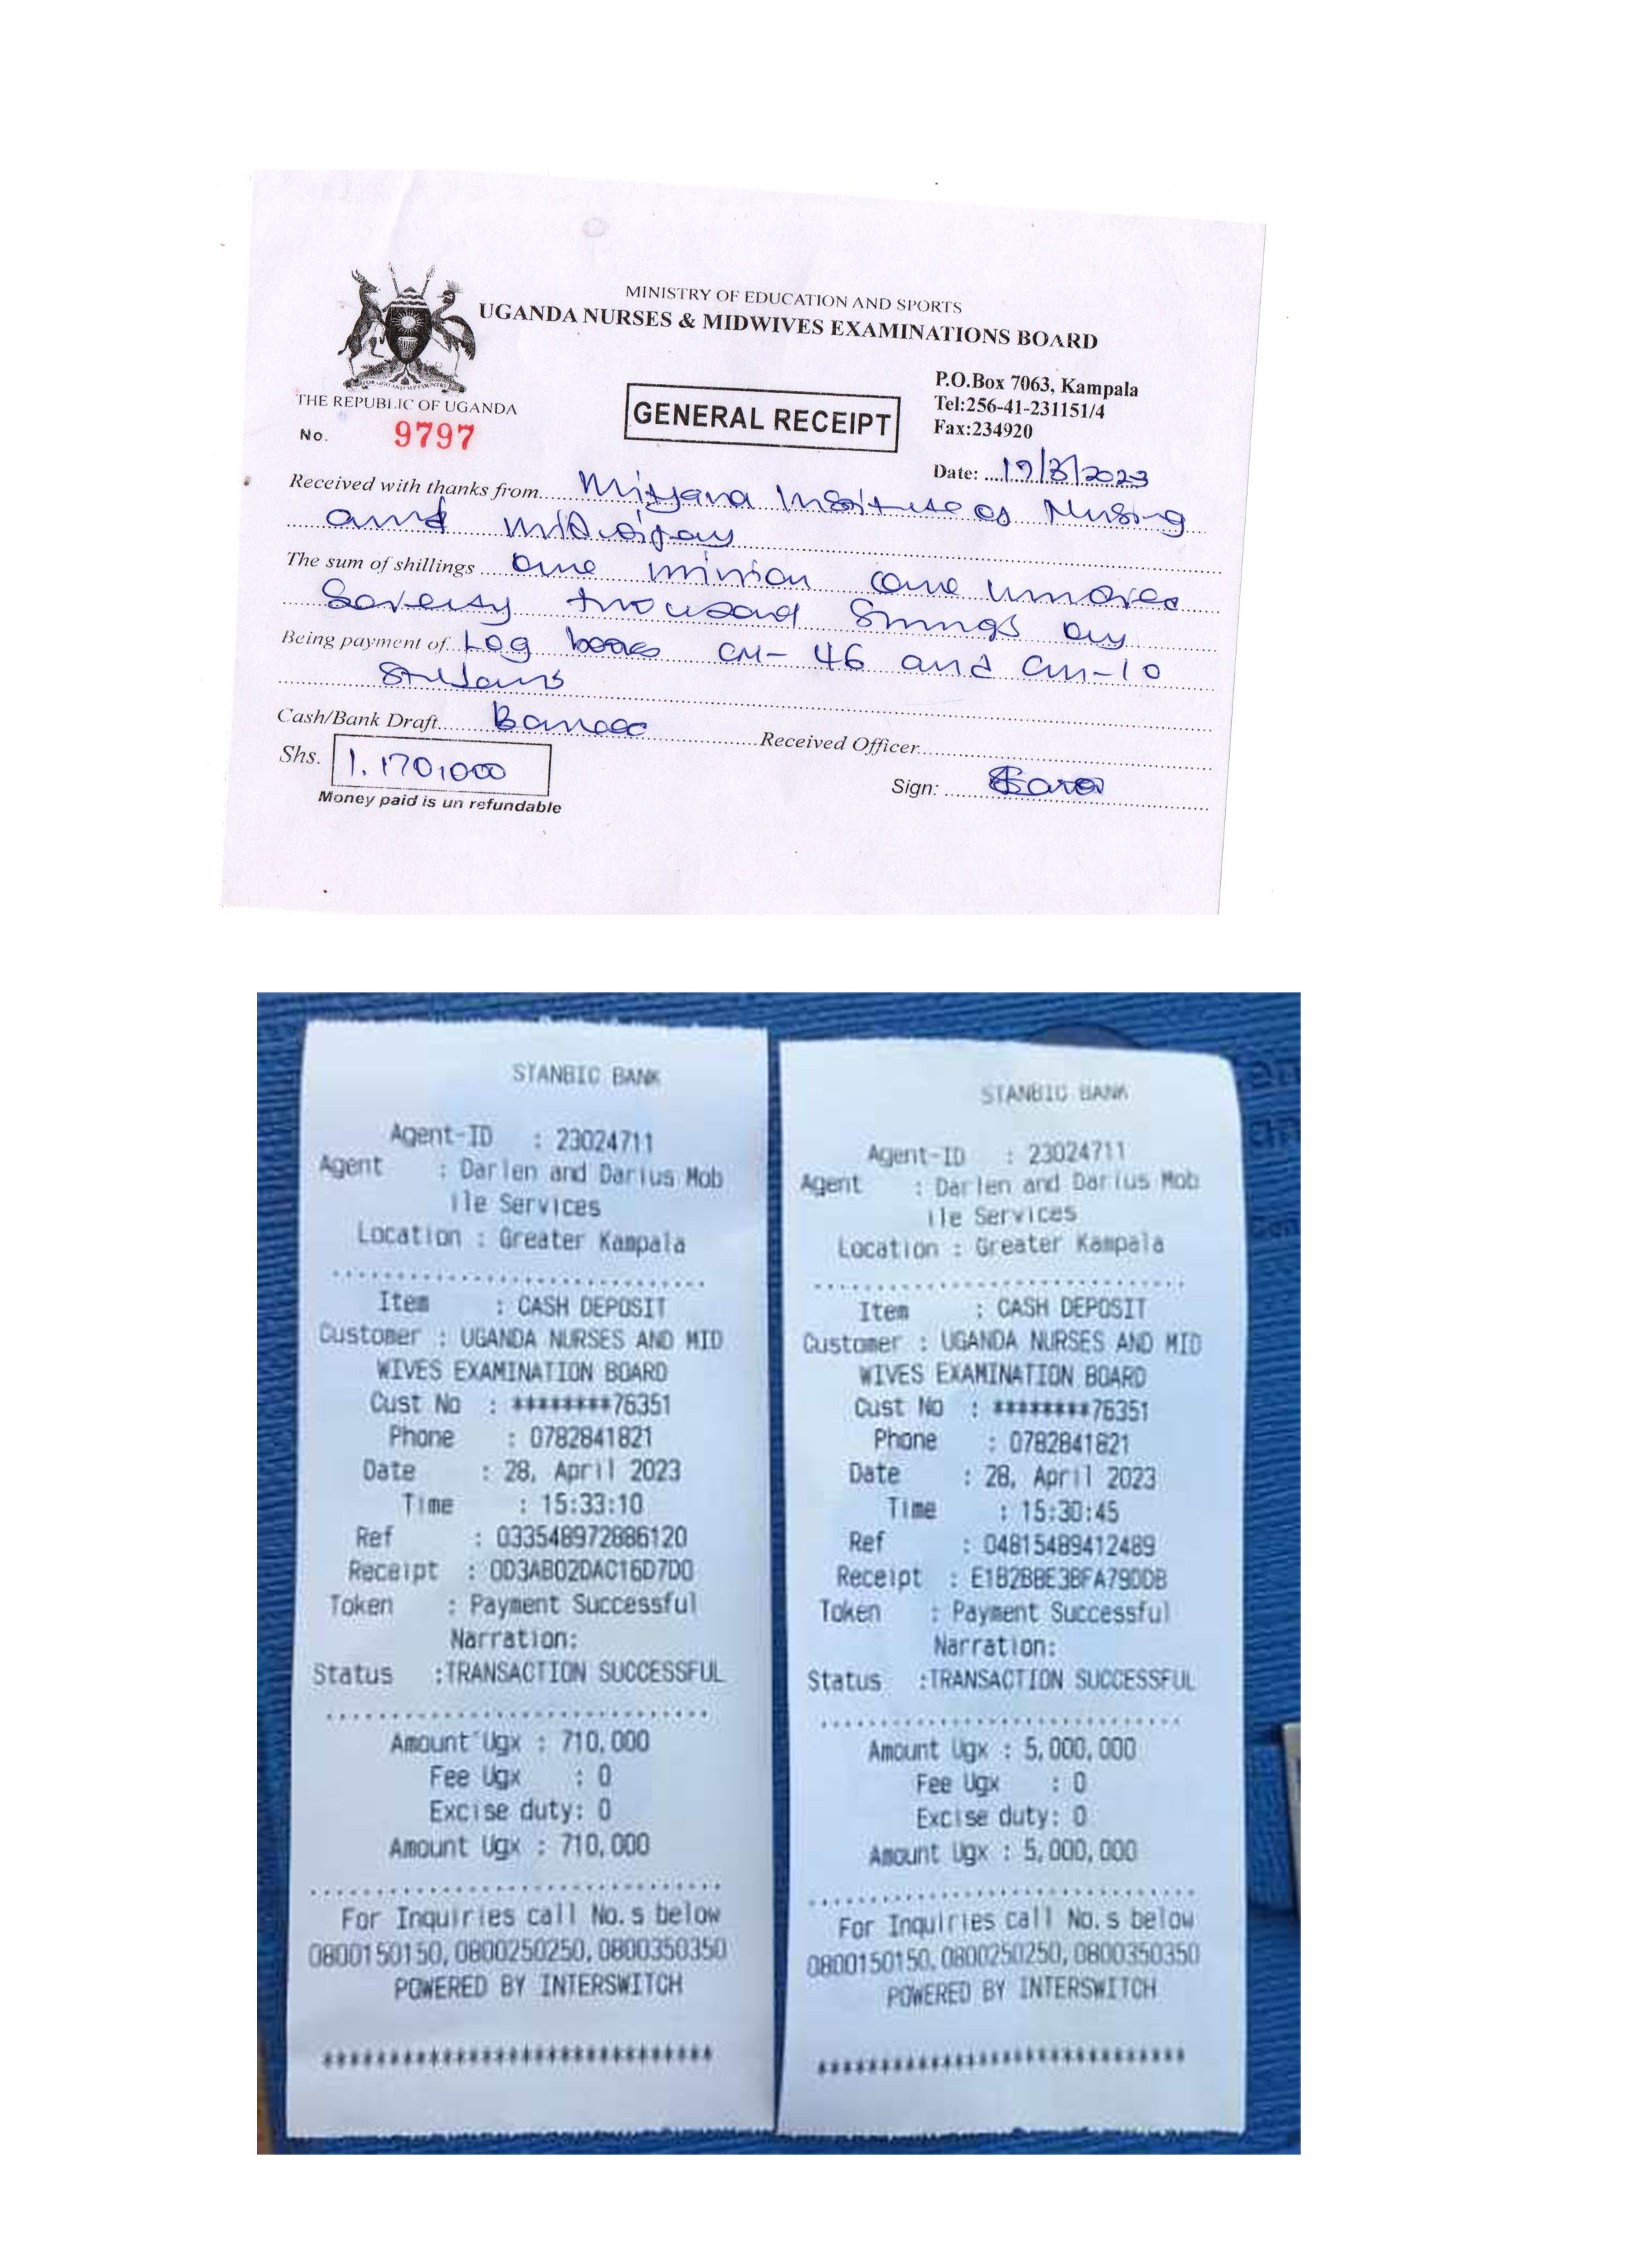 MINISTRY OF EDUCATION AND SPORTS
UGANDA NURSES & MIDWIVES EXAMINATIONS BOARD
THE REPUBLIC OF UGANDA
P.O.Box 7063, Kampala
Tel:256-41-231151/4
Fax:234920
GENERAL RECEIPT
No. 9797
Date: 17/3/2023
Received with thanks from Mityana Institute of Nursing
and midwifery
The sum of shillings One million one hundred
Seventy thousand Shillings only
Being payment of Log books CM- 46 and CM-10
Students
Cash/Bank Draft Banked
Received Officer
Shs. 1,170,000
Sign:
Money paid is un refundable
STANBIC BANK
Agent-ID : 23024711
Agent : Darlen and Darius Mob
ile Services
Location : Greater Kampala
Item : CASH DEPOSIT
Customer : UGANDA NURSES AND MID
WIVES EXAMINATION BOARD
Cust No : ********76351
Phone : 0782841821
Date : 28, April 2023
Time : 15:33:10
Ref : 033548972886120
Receipt : 0D3AB02DAC16D7D0
Token : Payment Successful
Narration:
Status :TRANSACTION SUCCESSFUL
Amount Ugx : 710,000
Fee Ugx : 0
Excise duty: 0
Amount Ugx : 710,000
For Inquiries call No.s below
0800150150, 0800250250, 0800350350
POWERED BY INTERSWITCH
*******************************
STANBIC BANK
Agent-ID : 23024711
Agent : Darlen and Darius Mob
ile Services
Location : Greater Kampala
Item : CASH DEPOSIT
Customer : UGANDA NURSES AND MID
WIVES EXAMINATION BOARD
Cust No : ********76351
Phone : 0782841821
Date : 28, April 2023
Time : 15:30:45
Ref : 04815489412489
Receipt : E1B2BBE3BFA790DB
Token : Payment Successful
Narration:
Status :TRANSACTION SUCCESSFUL
Amount Ugx : 5,000,000
Fee Ugx : 0
Excise duty: 0
Amount Ugx : 5,000,000
For Inquiries call No.s below
0800150150, 0800250250, 0800350350
POWERED BY INTERSWITCH
*****************************